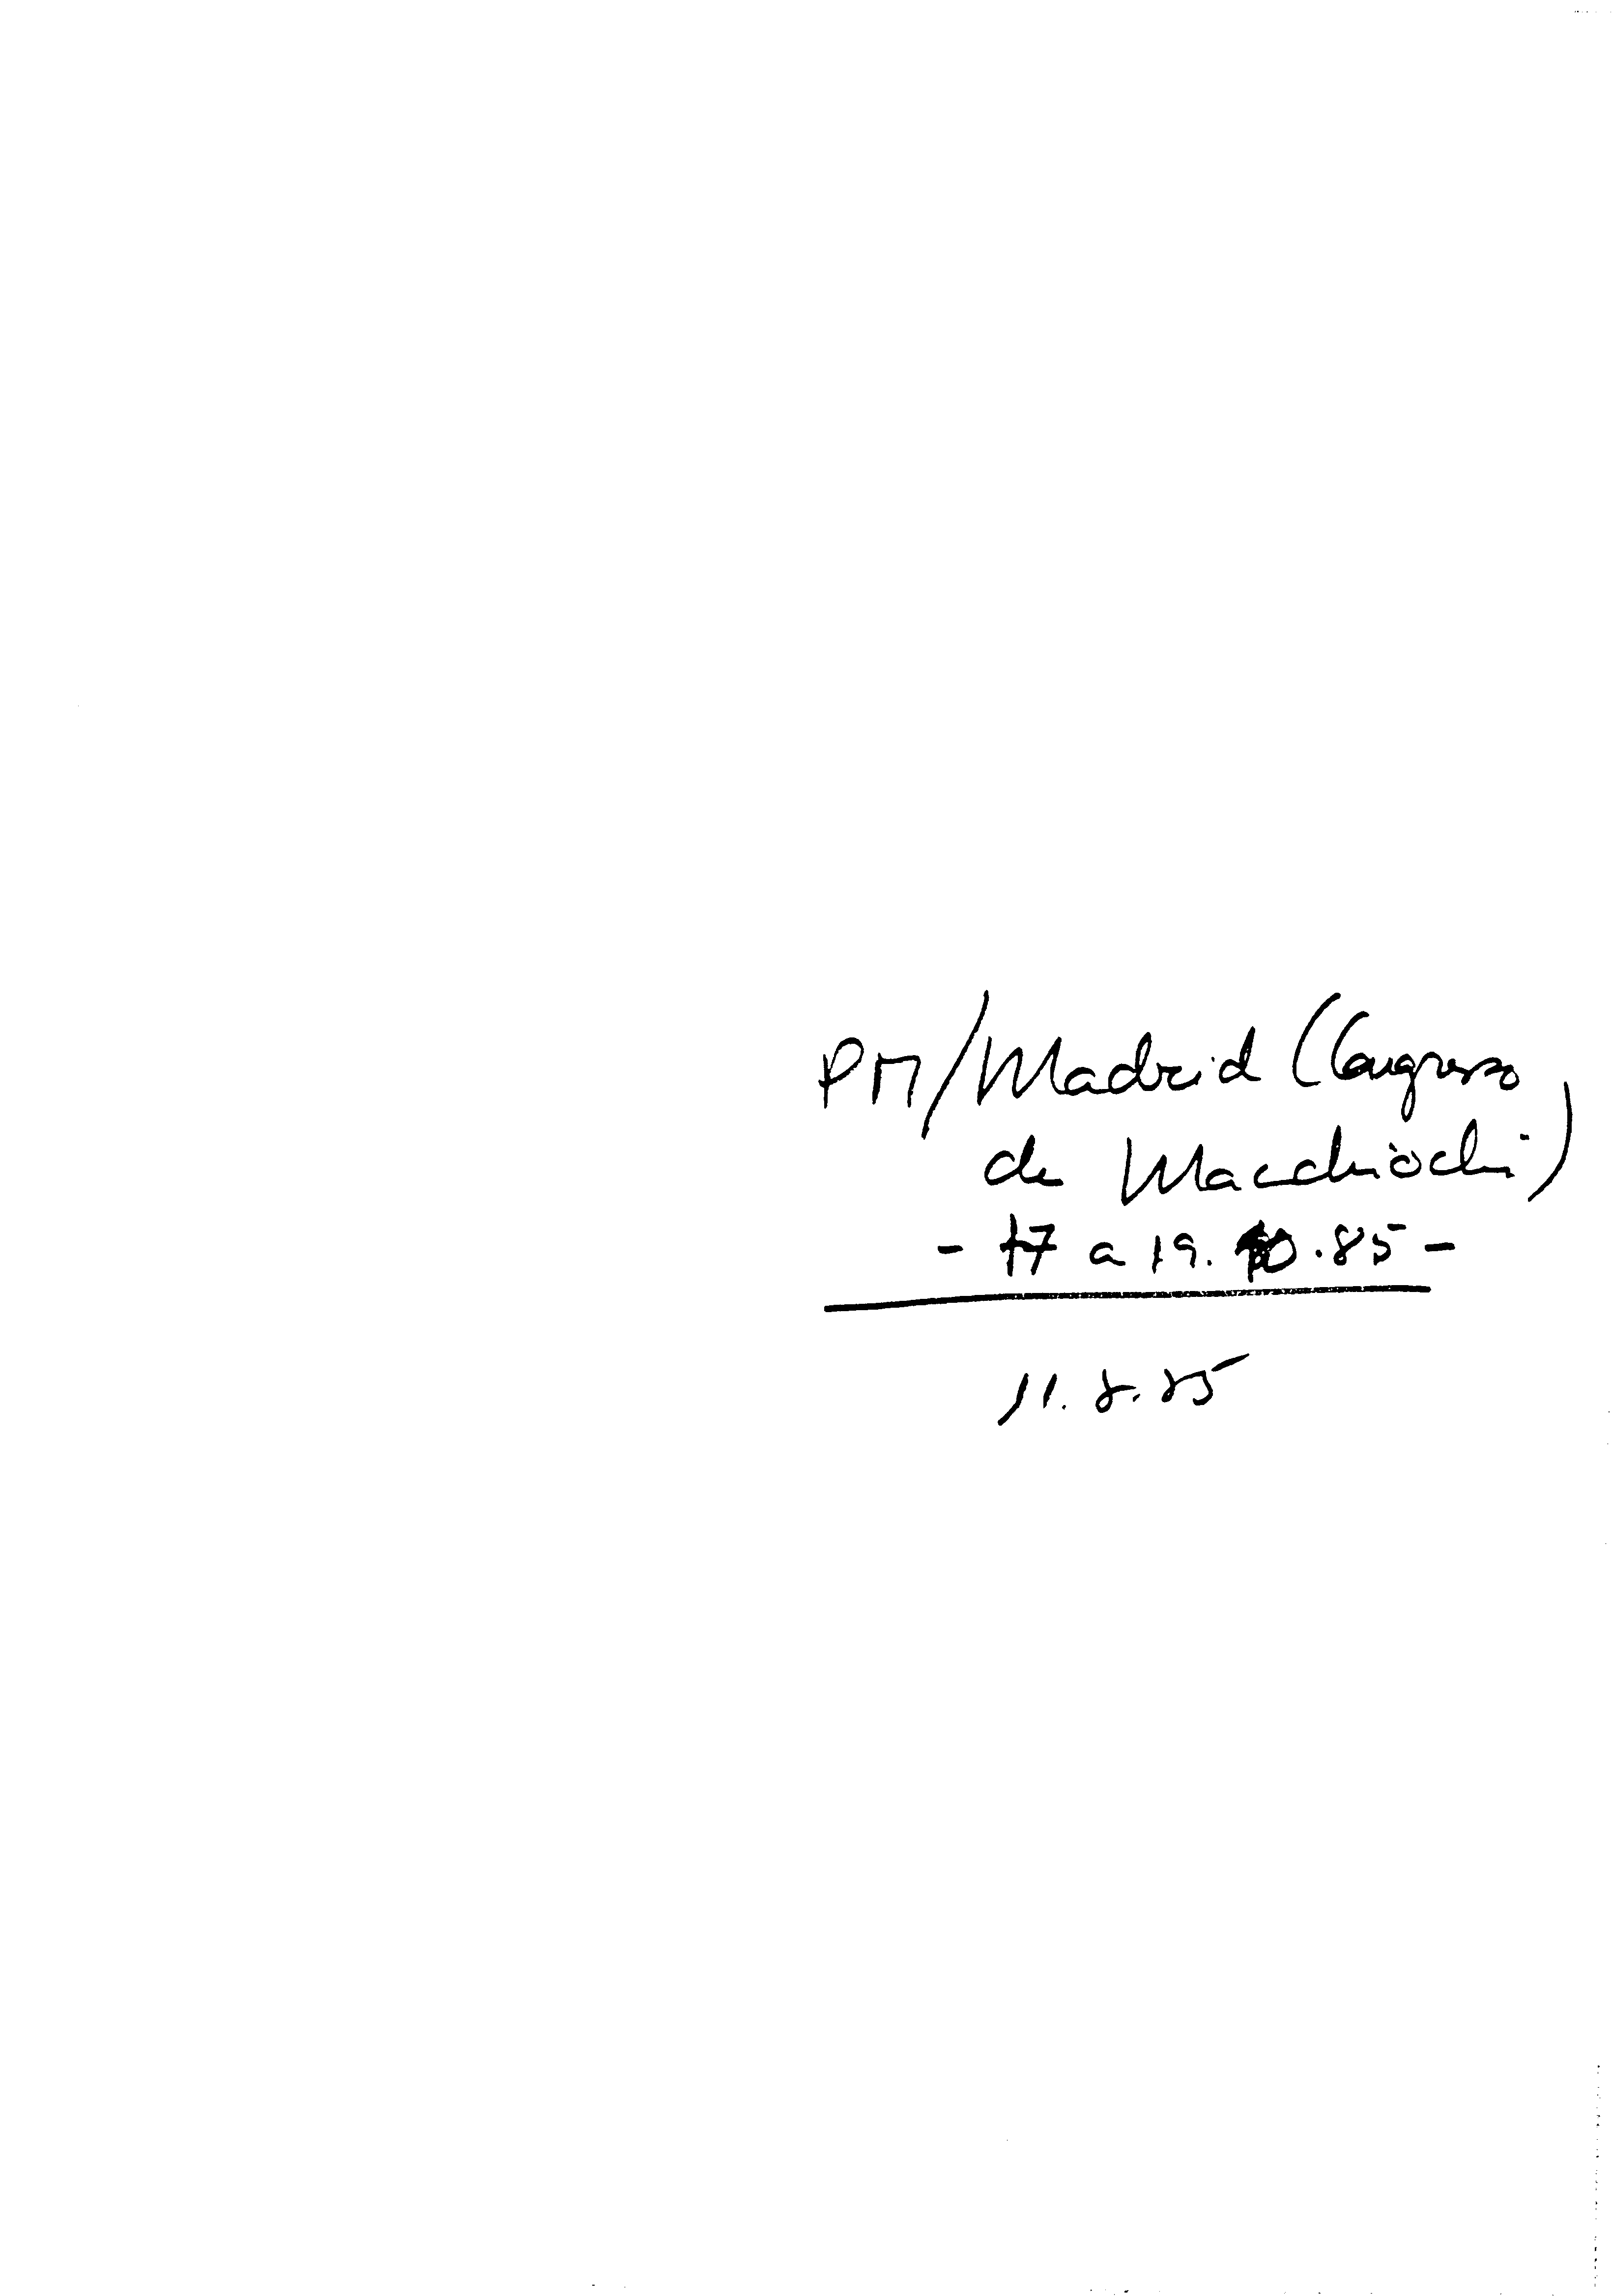 PM/Madrid (Congresso
de Macchiochi)
- 17 a 19.10.85 -
11.8.85